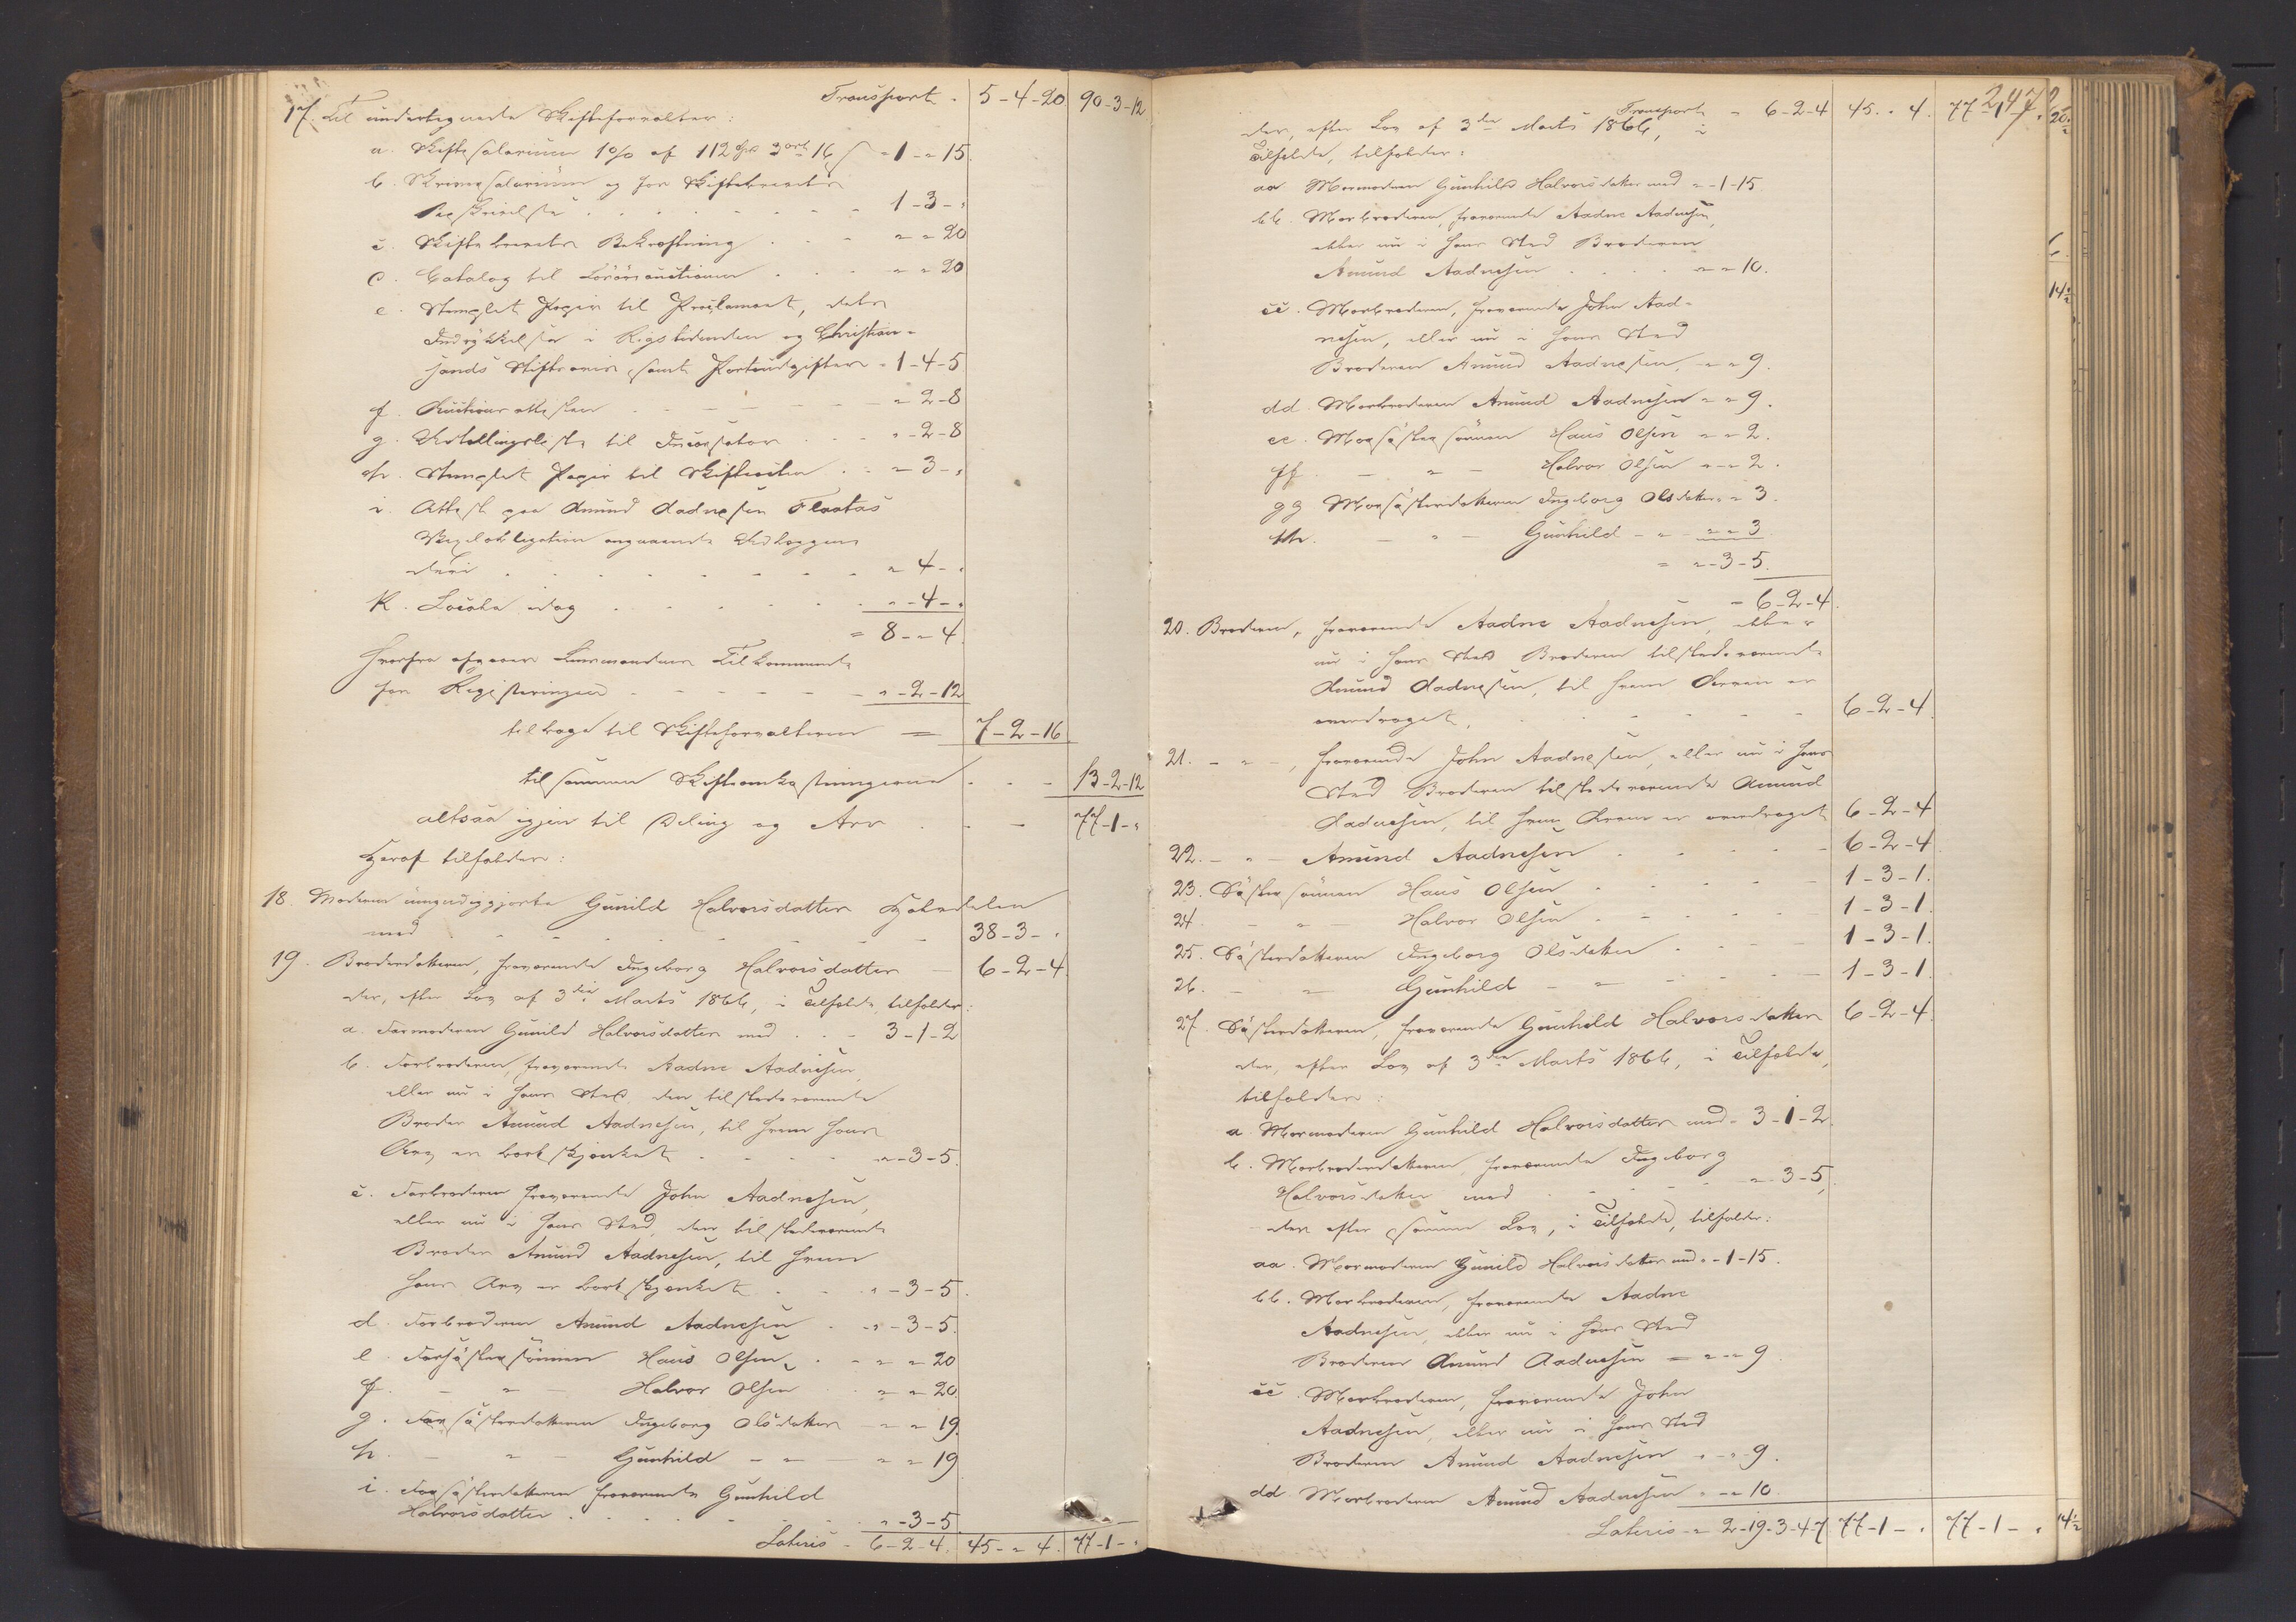 Transport - 5-4-20 90-3-12
17. Til undertegnede Skifteforvalter:
a. Skiftesalarium 1% af 112 Spd 3 ort 16 ß - 1-"-15
b. Skriversalarium og for Skiftebrevets
Beskrivelse . . . 1-3-"
c. Skiftebrevets Bekræftning . . . "-"-20
d. Catalog til Løsøreauctionen . . . "-"-20
e. Stemplet Papir til Proclamaet, dets
Indrykkelse i Rigstidenden og Christian-
sands Stiftsavis, samt Portoudgifter - 1-4-5
f. Auctionsattesten . . . "-2-8
g. Udstillingsliste til Incassator . . . "-2-8
h. Stemplet Papir til Skifteacten . . . "-3-"
i. Attest paa Amund Aadnesen Flaatas
Obligation angaaende
deri . . . "-4-"
k. idag . . . "-4-"
= 8-"-4
hvorfra afgaaer Lensmandens Tilkommende
for Registeringen . . . "-2-12
tilbage til Skifteforvalteren = 7-2-16
tilsammen Skifteomkostningerne . . . 13-2-12
altsaa igjen til Deling og Arv . . . 77-1-"
Heraf tilfalder:
18. Moderen umyndiggjorte Gunild Halvorsdatter Halvdelen
med . . . 38-3-"
19. Broderdatteren, fraværende Ingeborg Halvorsdatter - 6-2-4
der, efter Lov af 3die Marts 1866, i Tilfælde, tilfalder:
a. Farmoderen Gunild Halvorsdatter med . . . 3-1-2
b. Farbroderen, fraværende Aadne Aadnesen,
eller nu i hans Sted, den tilstedeværende
Broder Amund Aadnesen, til hvem hans
Arv er bortskjenket . . . "-3-5
c. Farbroderen fraværende John Aadnesen,
eller nu i hans Sted, den tilstedeværende
Broder Amund Aadnesen, til hvem
hans Arv er bortskjenket . . . "-3-5
d. Farbroderen Amund Aadnesen . . . "-3-5
e. Farsøstersønnen Hans Olsen . . . "-"-20
f. - " - Halvor Olsen . . . "-"-20
g. Farsøsterdatteren Ingeborg Olsdatter - "-"-19
h. - " - Gunhild - " - "-"-19
i. Farsøsterdatteren fraværende Gunhild
Halvorsdatter . . . "-3-5
Lateris - 6-2-4 45-"-4 77-1-"
247
Transport - 6-2-4 45-"-4 77-1-"
der, efter Lov af 3die Marts 1866, i
Tilfælde, tilfalder:
aa Mormoderen Gunhild Halvorsdatter med "-1-15
bb. Morbroderen, fraværende Aadne Aadnesen,
eller nu i hans Sted Broderen
Amund Aadnesen . . . "-"-10.
cc. Morbroderen, fraværende John Aad-
nesen, eller nu i hans Sted
Broderen Amund Aadnesen, "-"-9.
dd. Morbroderen Amund Aadnesen "-"-9.
ee. Morsøstersønnen Hans Olsen "-"-2.
ff. - " - Halvor Olsen "-"-2.
gg Morsøsterdatteren Ingeborg Olsdatter "-"-3.
hh. - " - Gunhild - " - "-"-3
= "-3-5.
= 6-2-4.
20. Broderen, fraværende Aadne Aadnesen, eller
nu i hans Sted Broderen tilstedeværende
Amund Aadnesen, til hvem Arven er
overdraget, . . . 6-2-4
21. - " - , fraværende John Aadnesen, eller nu i hans
Sted Broderen tilstedeværende Amund
Aadnesen, til hvem Arven er overdraget 6-2-4
22. - " - Amund Aadnesen . . . 6-2-4
23. Søstersønnen Hans Olsen . . . 1-3-1
24 - " - Halvor Olsen . . . 1-3-1
25. Søsterdatteren Ingeborg Olsdatter . . . 1-3-1
26. - " - Gunhild - " - 1-3-1
27. Søsterdatteren, fraværende Gunhild Halvorsdatter 6-2-4
der, efter Lov af 3die Marts 1866, i Tilfælde,
tilfalder:
a Mormoderen Gunhild Halvorsdatter med - 3-1-2
b. Morbroderdatteren, fraværende Ingeborg
Halvorsdatter med . . . "-3-5,
der efter samme Lov, i Tilfælde, tilfalder:
aa. Mormoderen Gunild Halvorsdatter med "-1-15.
bb. Morbroderen, fraværende Aadne
Aadnesen, eller nu i hans Sted
Broderen Amund Aadnesen - "-"-9
cc. Morbroderen, fraværende John
Aadnesen, eller nu i hans Sted
Broderen Amund Aadnesen "-"-9.
dd Morbroderen Amund Aadnesen "-"-10.
Lateris - " 2-19-3-4-7 77-1-" 77-1-"